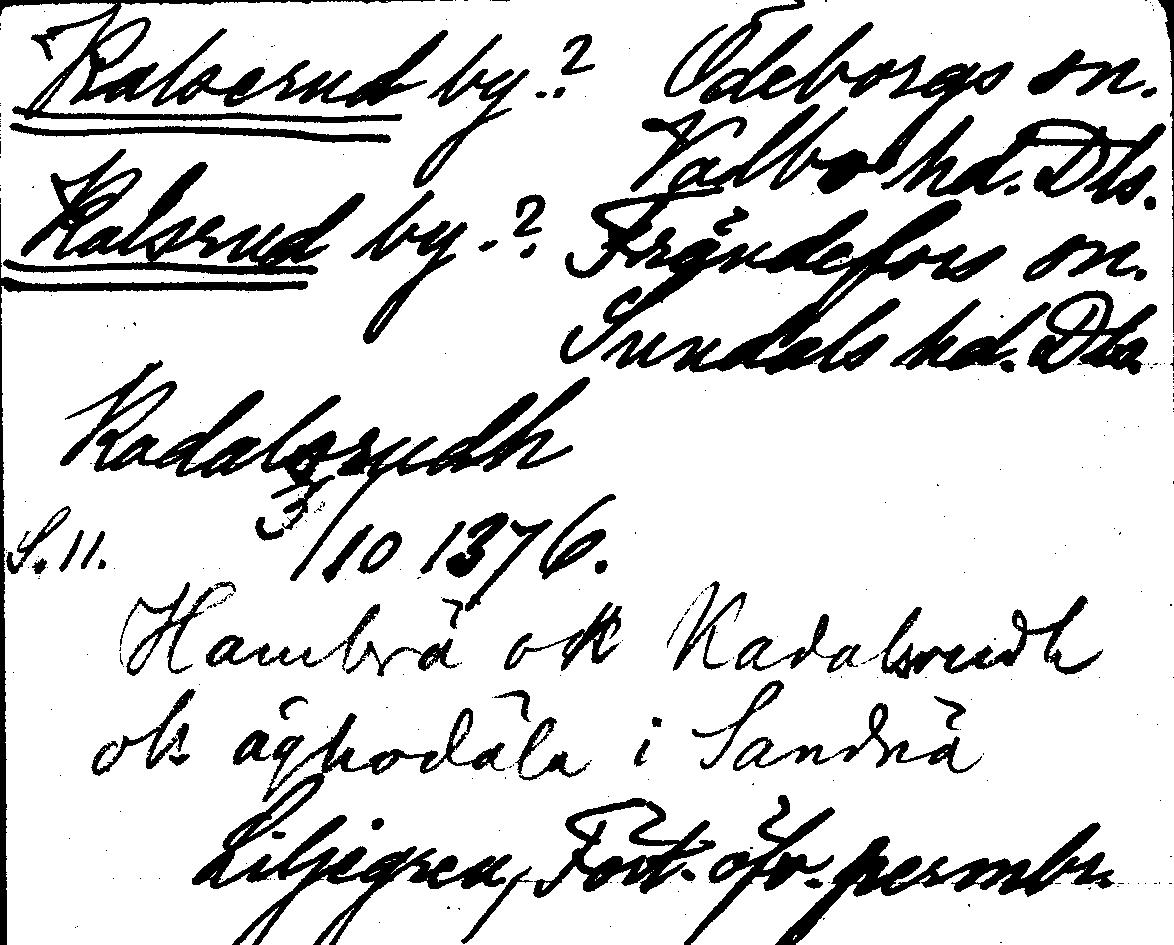 Kalserud by.? Ödeborgs sn.
Valbo hd. Dls.
Kalsrud by.? Frändefors sn.
Sundals hd. Dls.
Kadalsrudh
S. 11. 3/10 1376.
Hambrä ok Kadalsrudh
ok äghodäla i Sandrä
Liljegren, Fört. öfv. permbr.